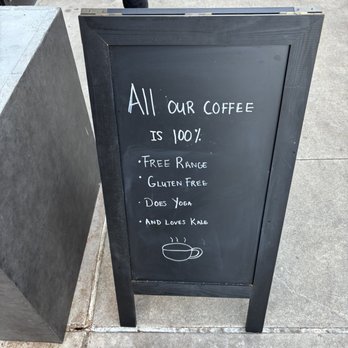 All OUR COFFEE
IS 100%
• FREE RANGE
• GLUTEN FREE
• DOES YOGA
• AND LOVES KALE